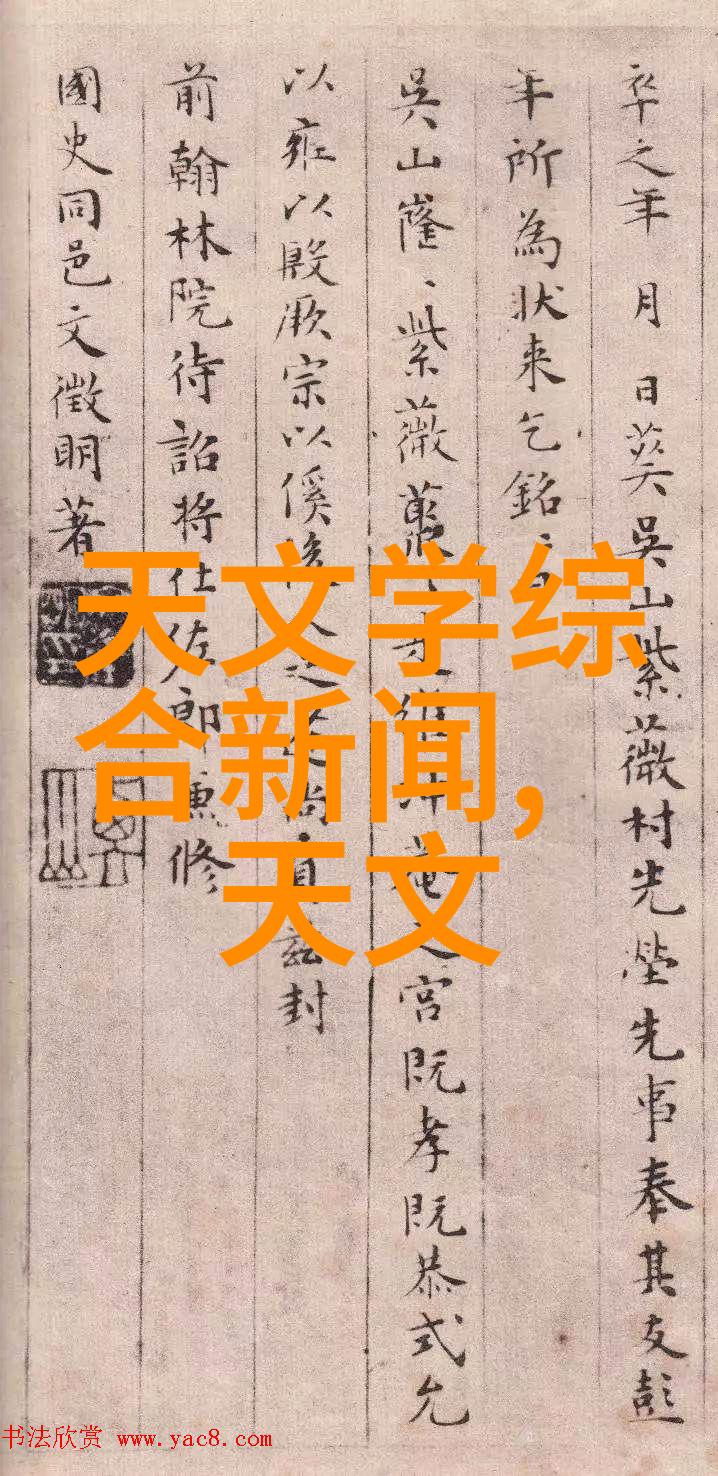 卒之年 月 日葬吳山紫薇村先塋先事奉其友彭
年所為狀來乞銘
吳山嶐、紫薇 宮既孝既恭式允
以雍以殷厥宗以傒後人 封
前翰林院待詔將仕佐郎兼修
國史同邑文徵明著
天文学综
合新闻,
天文
书法欣赏 www.yac8.com